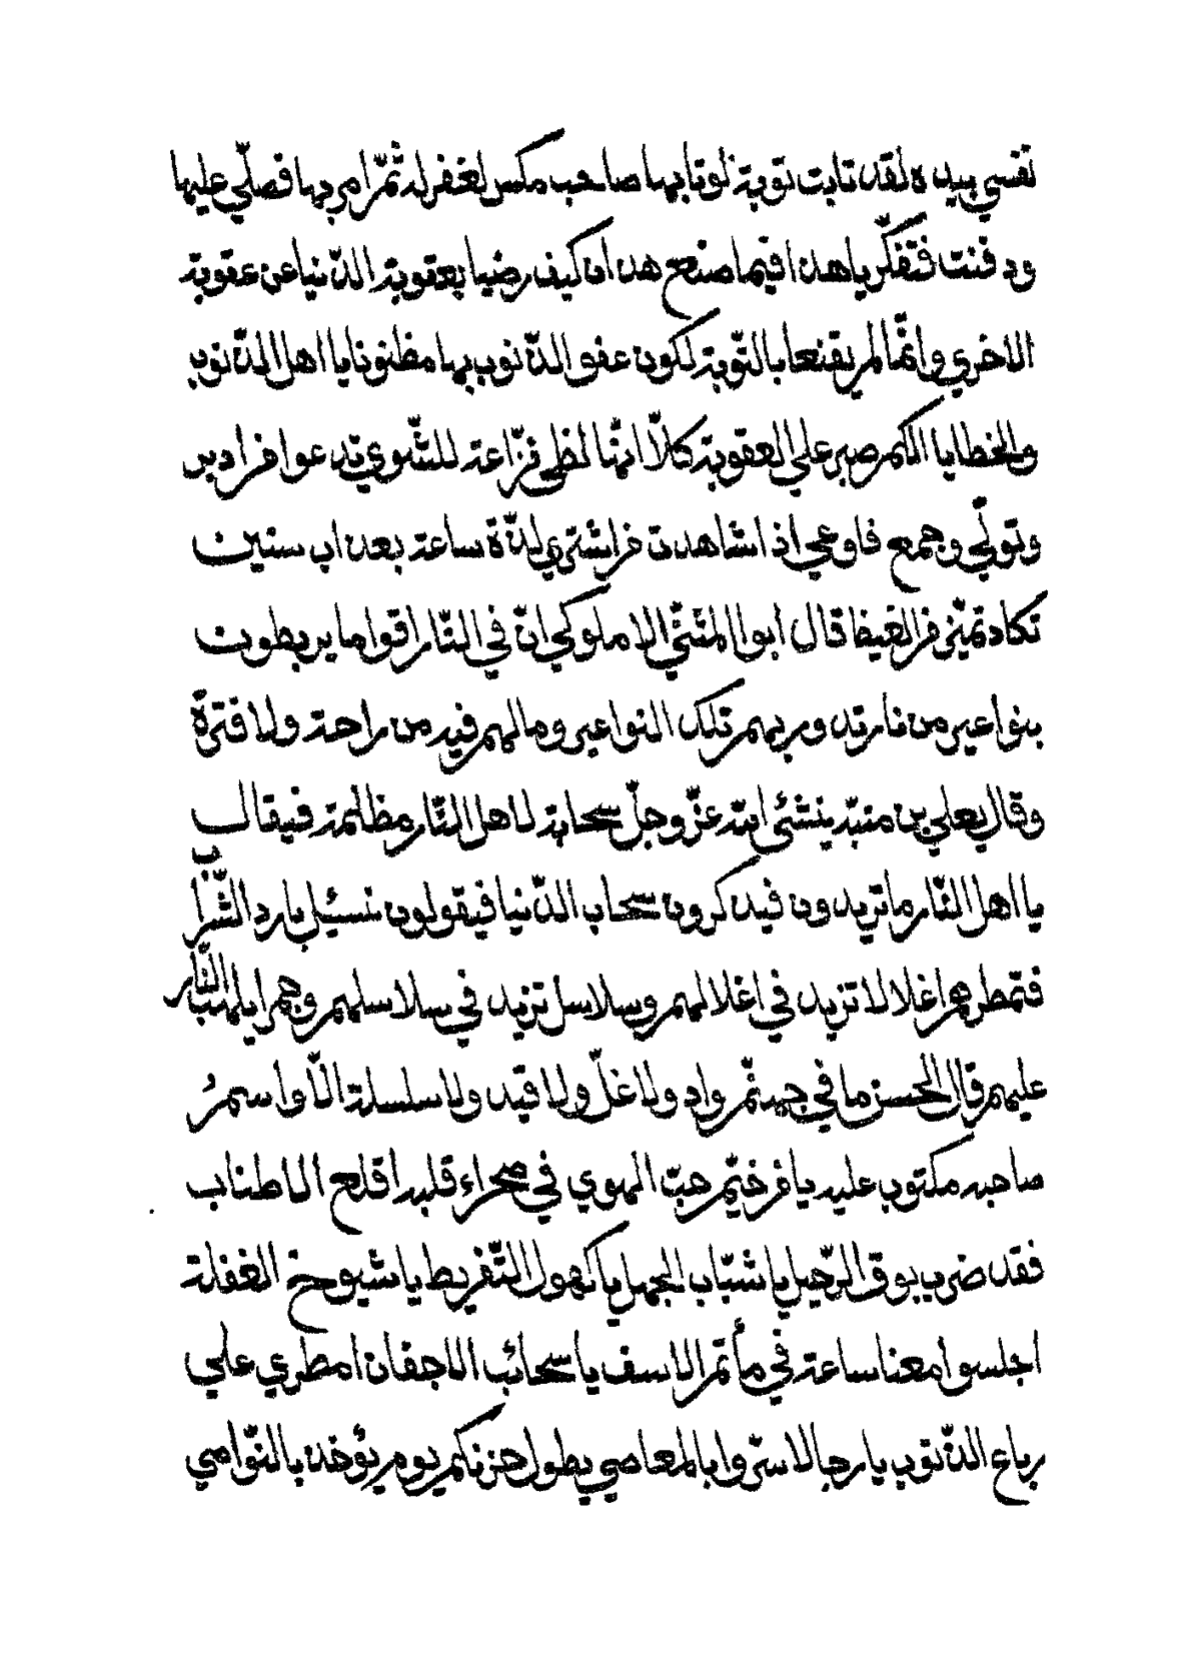 نفسي بيده لقد تابت توبة لوتابها صاحب مكس لغفرله ثمّ امر بها فصلّي عليها
ودفنت فتفكّر ياهذا فيما صنع هذان كيف رضيا بعقوبة الدّنيا عن عقوبة
الاخري وانّما لم يقنعا بالتّوبة لكون عفو الذّنوب بها مظنونا يا اهل الذّنوب
والخطايا الكم صبر علي العقوبة كلّا انّها لظي نزّاعة للشّوي تدعوا من ادبر
وتولّي وجمع فاوعي اذا شاهدت من اشتري لذّة ساعة بعذاب سنين
تكاد تميّز من الغيظ قال ابوا المثنّي الاملوكي انّ في النّار اقواما يربطون
بنواعير من نار تدور بهم تلك النواعير ومالهم فيه من راحة ولا فترة
وقال يعلي بن منبّه ينشئ الله عزّ وجلّ سحابة لاهل النّار مظلمة فيقال
يا اهل النّار ما تريدون فيذكرون سحاب الدّنيا فيقولون نسئل بارد الشّراب
فتمطرهم اغلالا تزيد في اغلالهم وسلاسل تزيد في سلاسلهم وجمرا يلهب النّار
عليهم قال الحسن ما في جهنّم واد ولا غلّ ولا قيد ولا سلسلة الّا واسمُ
صاحبه مكتوب عليه يا من خيّم حبّ الهوي في صحراء قلبه اقلع الاطناب
فقد ضرب بوق الرّحيل يا شبّاب الجهل يا كهول التّفريط يا شيوخ الغفلة
اجلسوا معنا ساعة في مأتم الاسف يا سحائب الاجفان امطري علي
رباع الذّنوب يا رجالا سرّوا بالمعاصي يطول حزنكم يوم يؤخذ بالنّواصي